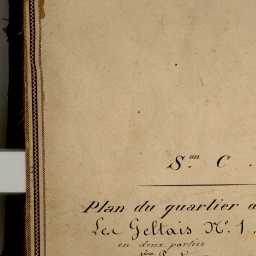 S.on C.
Plan du quartier
Les Geltais N.o 1.
en deux parties